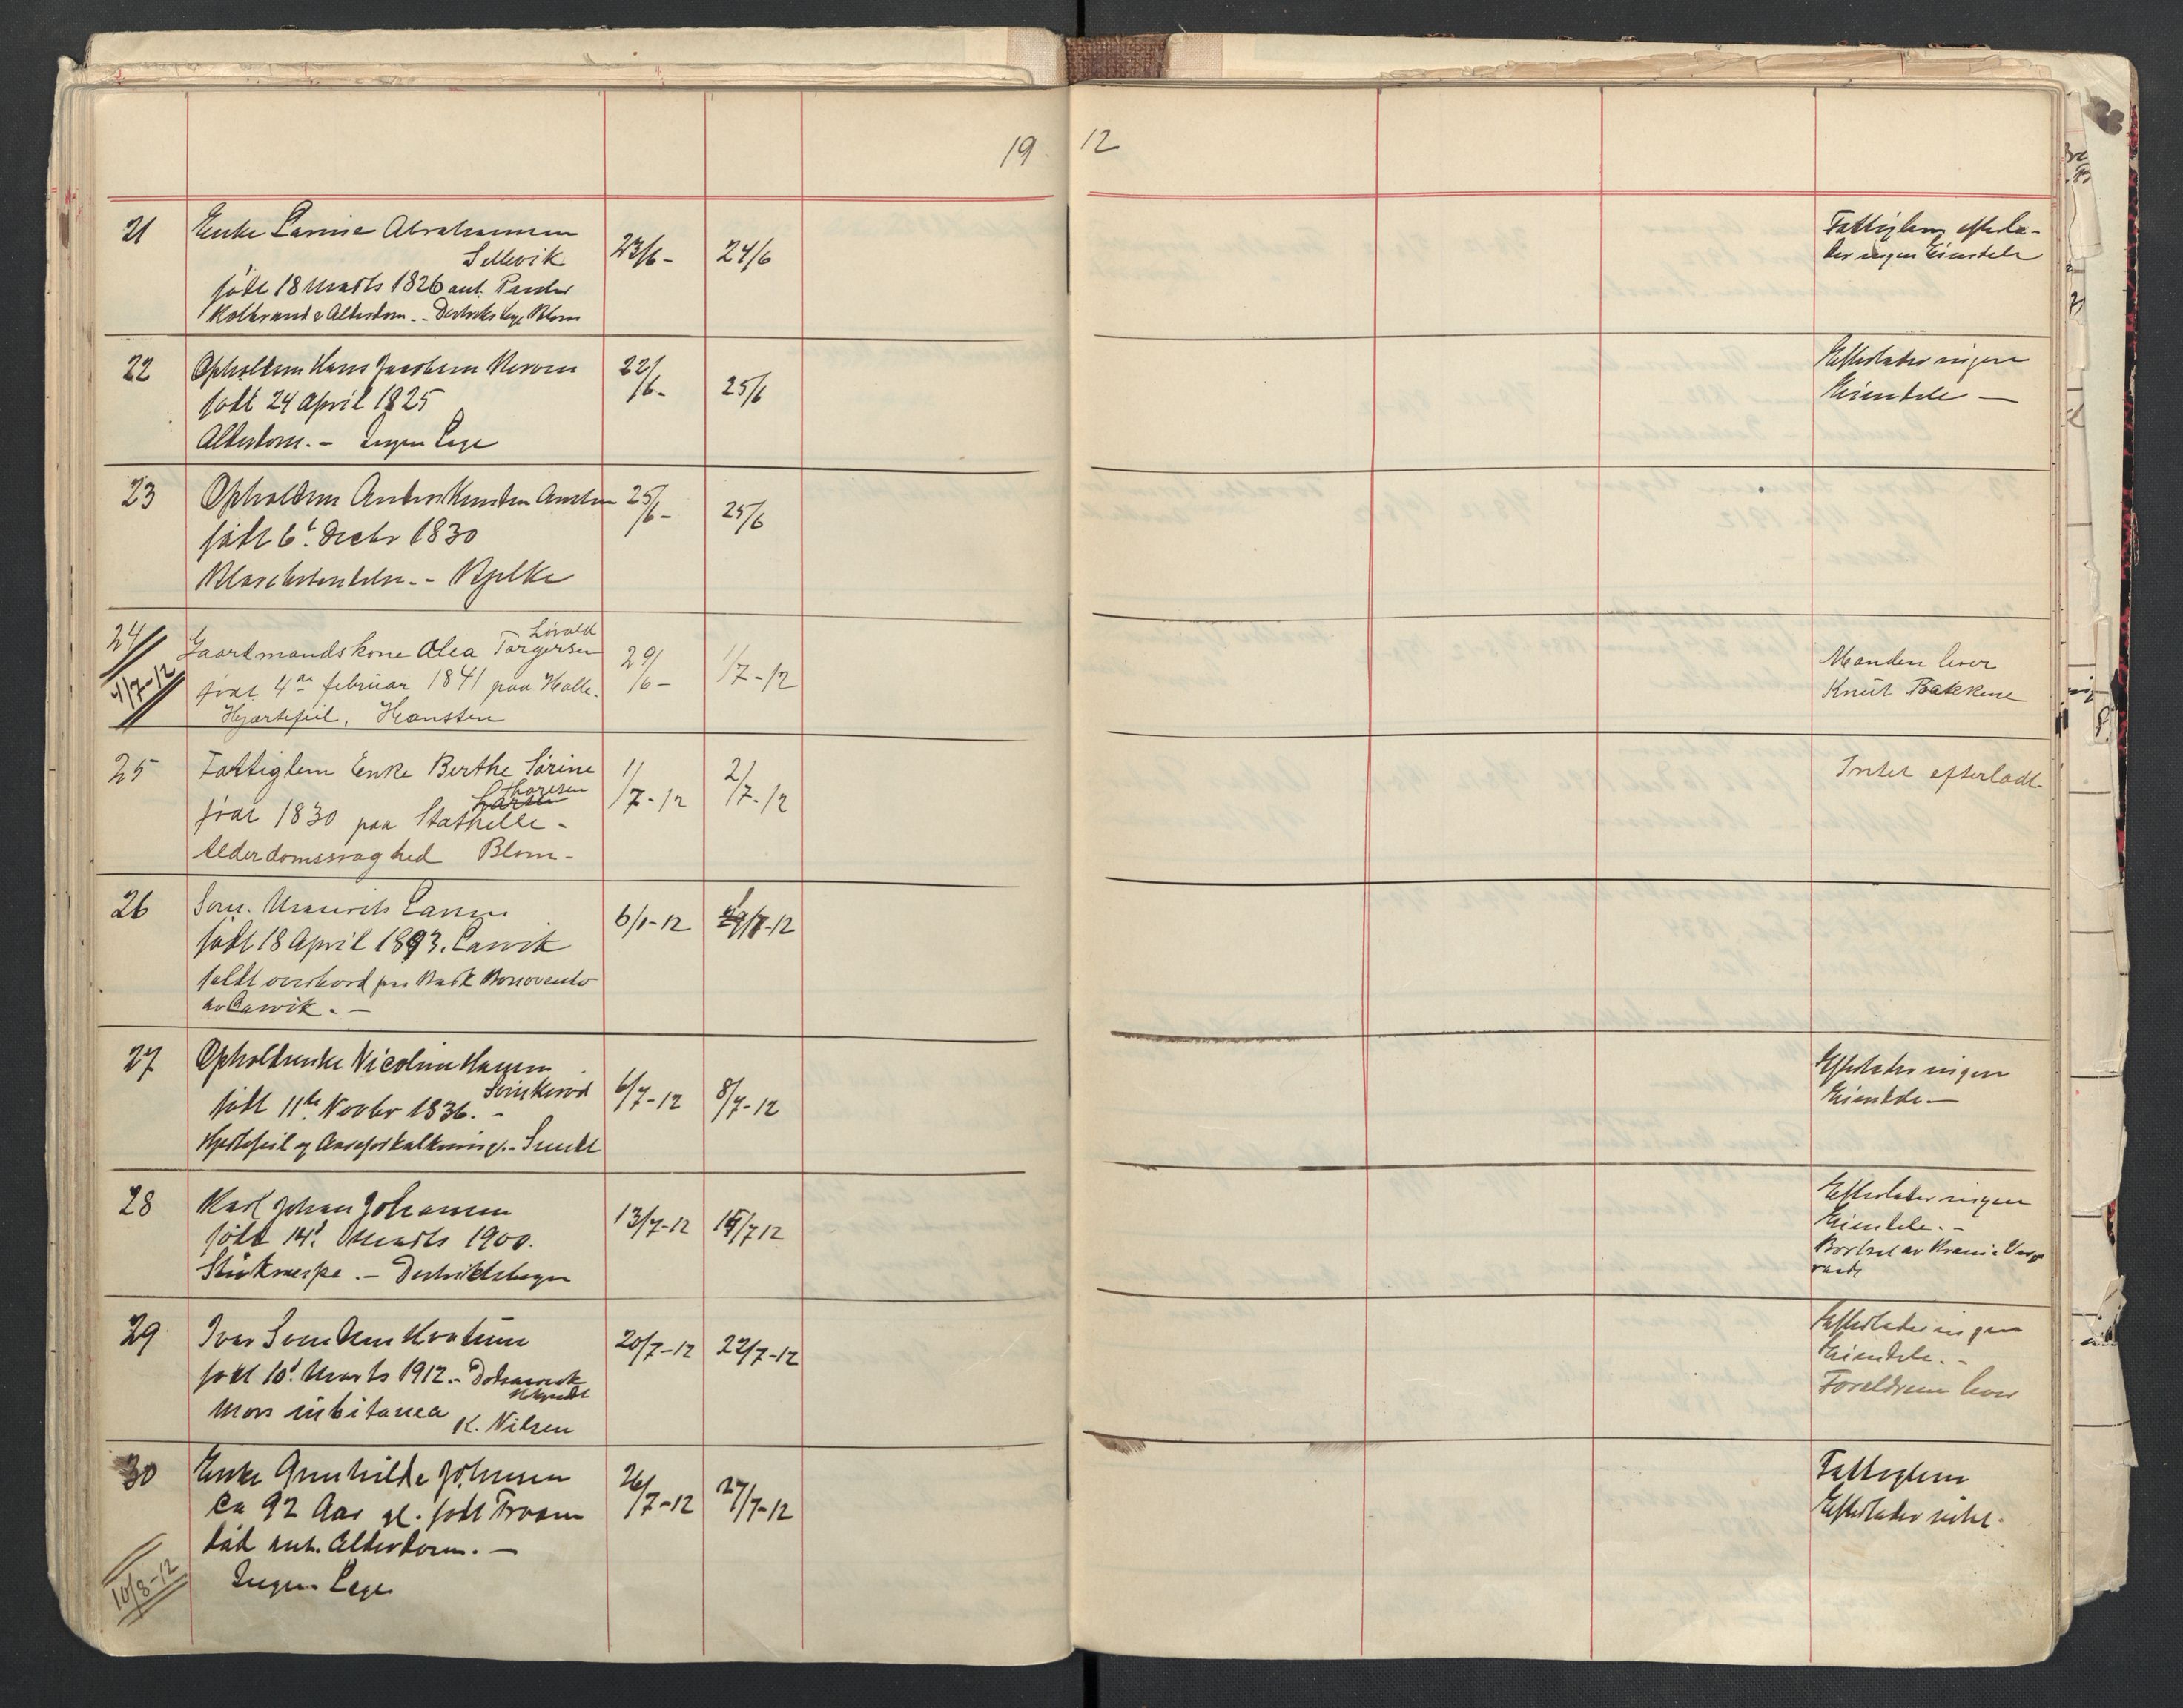 19 12
21 Enke Abrahamsen 23/6- 24/6 Fattiglem efterla-
Sillevik der ingen Eiendele
født 18 Marts 1826 ant.
Koldbrand & Alderdom.- Blom
22 Opholdsm Hans Jacobsen 22/6- 25/6 Efterlader ingen
født 24 April 1825 Eiendele —
Alderdom.- Ingen Læge
23 Opholdsm Anders Knudsen 25/6- 25/6
født 6t Decbr 1830
- Bjelke
24 Lövald
Gaardmandskone Olea Torgersen 29/6- 1/7-12 Manden lever
4/7-12 född 4de februar 1841 paa Halle. Knut Bakkene
Hjærtefeil, Hansten
25 Fattiglem Enke Berthe Sörine 1/7-12 2/7-12 Intet efterladt-
Thoresen
Larsen
född 1830 paa Stathelle-
Alderdomssvaghed Blom-
26 Larsen 6/1-12 /7-12
født 18 April 1893. Larvik
faldt overbord fra Bark
av Larvik.-
27 Opholdsenke Nicoline Hansen 6/7-12 8/7-12 Efterlader ingen
født 11te Novbr 1836.- Eiendele—
Hjertefeil og Aareforkalkning.-
28 Karl Johan Johansen 13/7-12 /7 12 Efterlader ingen
født 14d Marts 1900. Eiendele.-
.- Distriktslægen Bortsat av Kristiania Værge
raad
29 Ivar 20/7-12 22/7-12 Efterlader ingen
født 10d Marts 1912.- Eiendele.-
Mors subitanea K. Nilsen Forældrene lever
30 Enke Gunhilde Johnsen 26/7-12 27/7-12 Fattiglem
Ca 92 Aar gl. født Efterlader intet.
død ant. Alderdom.—
10/8-12 Ingen Læge